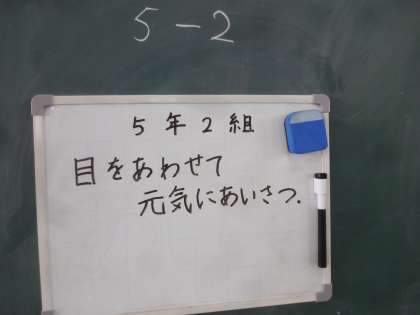 5-2
5年2組
目をあわせて
元気にあいさつ.